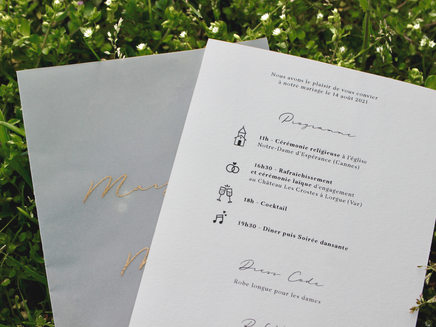 Nous avons le plaisir de vous convier
à notre mariage le 14 août 2021
Programme
11h - Cérémonie religieuse à l'église
Notre-Dame d'Espérance (Cannes)
16h30 - Rafraichissement
et cérémonie laïque d'engagement
au Château Les Crostes à Lorgue (Var)
18h - Cocktail
19h30 - Dîner puis Soirée dansante
Dress Code
Robe longue pour les dames